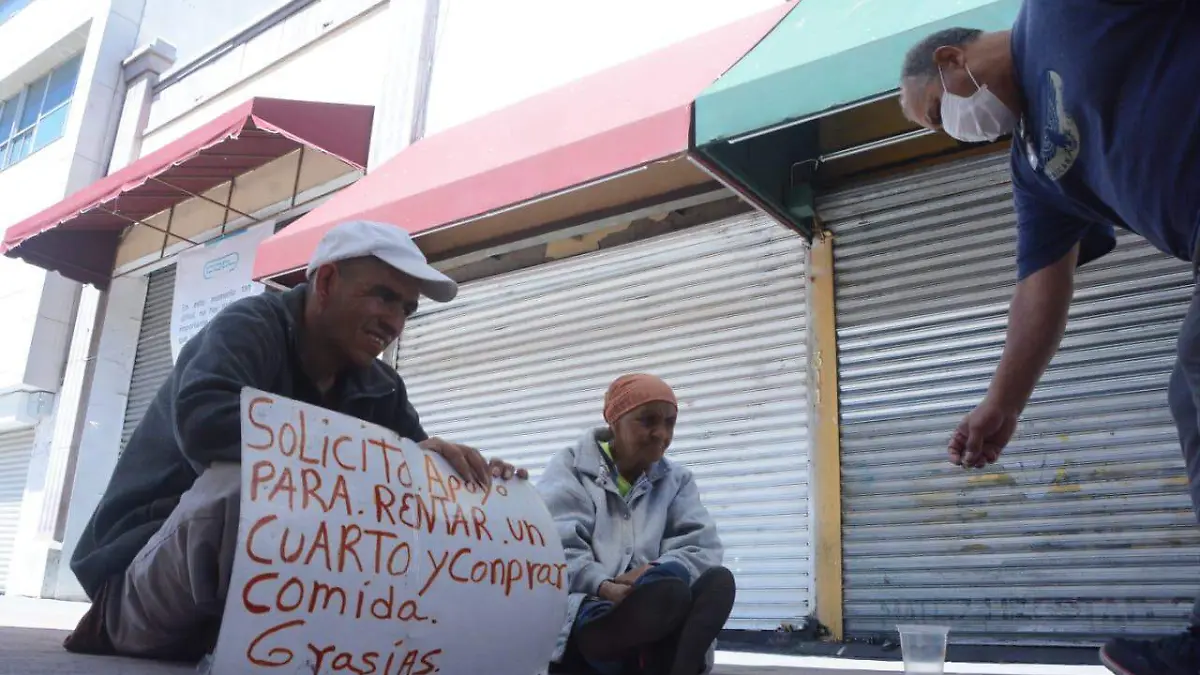 SOLICITO. APOYO
PARA. RENTAR. un
CUARTO y Conprar
Comida.
Grasias.